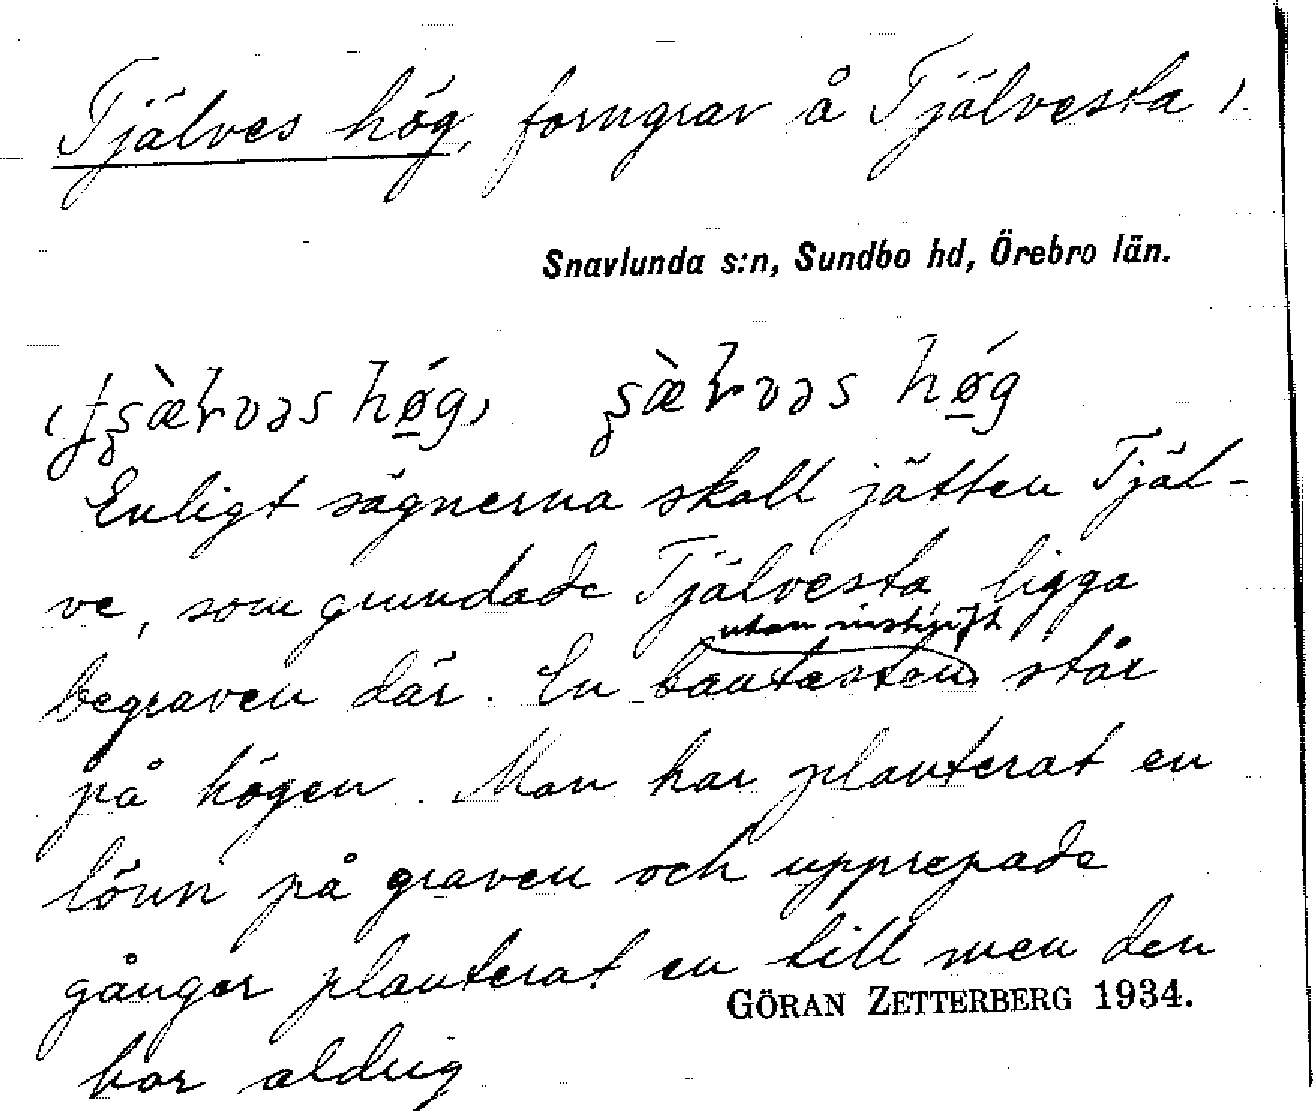 Tjälves hög, forngrav å Tjälvesta 1.
Snavlunda s:n, Sundbo hd, Örebro län.
hǿ̲g, hǿ̲g
Enligt sägnerna skall jätten Tjäl-
ve, som grundade Tjälvesta ligga
utan inskrift
begraven där. En bautasten står
på högen. Man har planterat en
lönn på graven och upprepade
gånger planterat en till men den
GÖRAN ZETTERBERG 1934.
bor aldrig